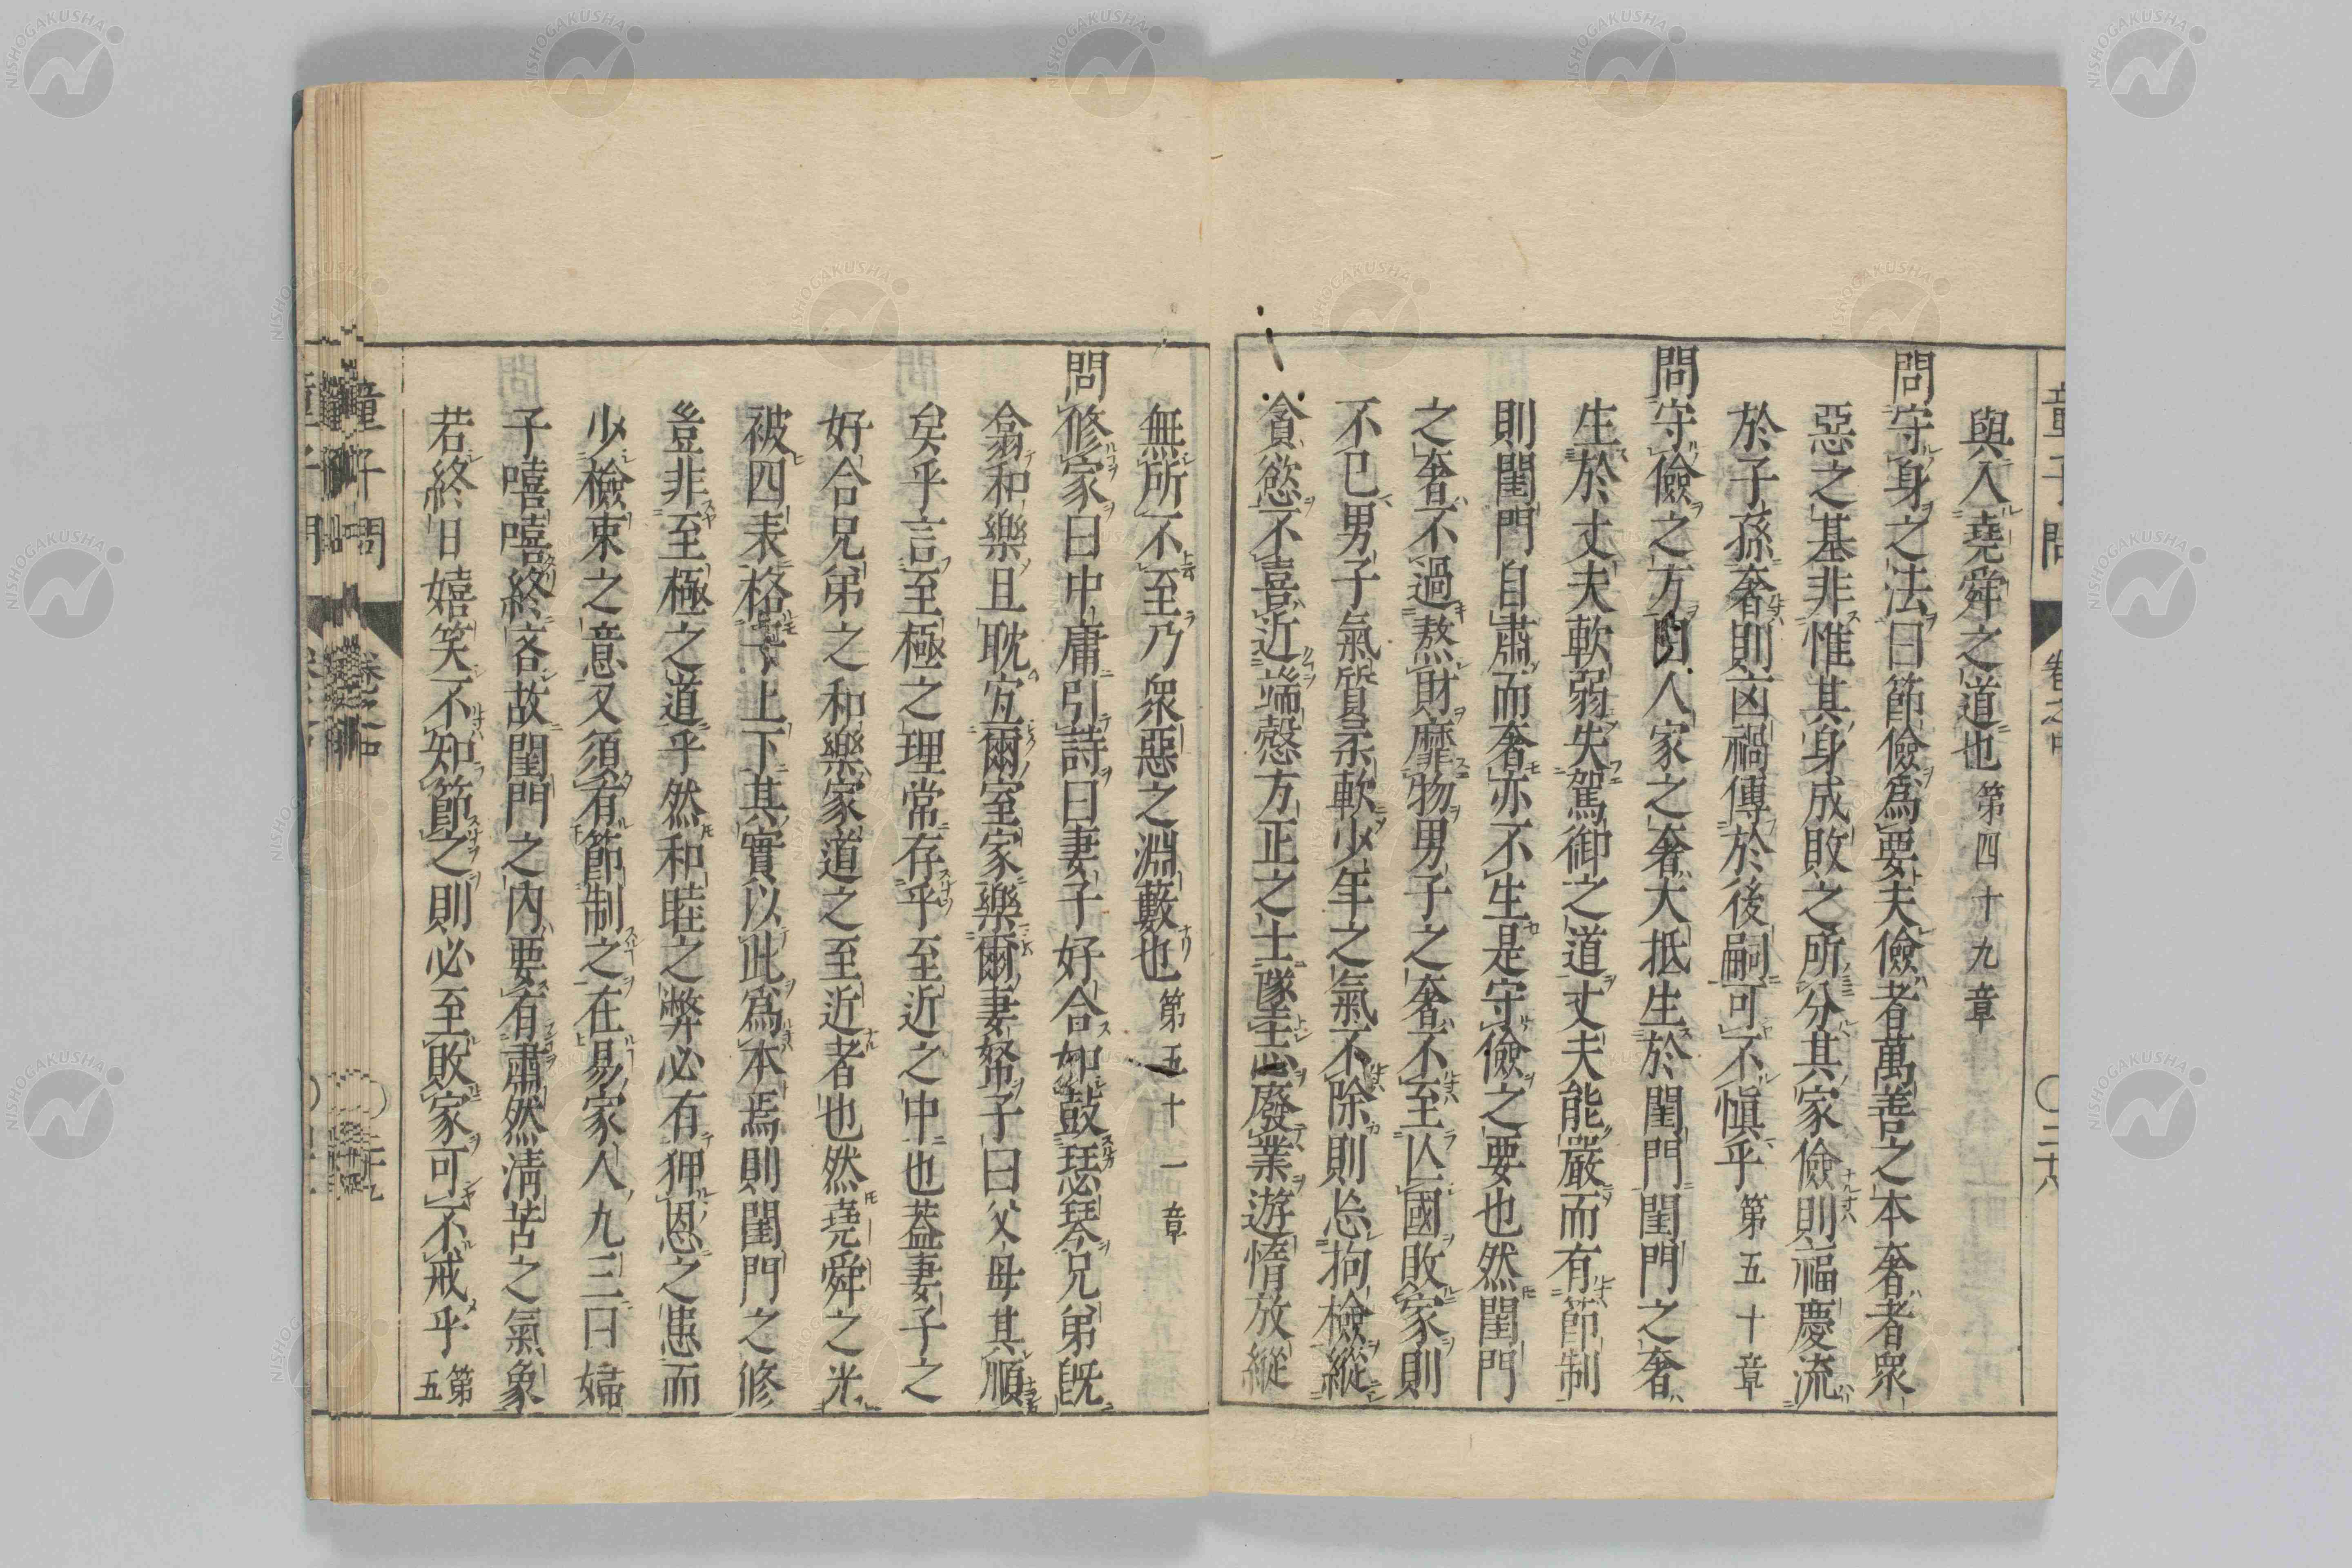 與入堯舜之道也 第四十九章
問守身之法曰節儉爲要夫儉者萬善之本奢者衆
惡之基非惟其身成敗之所分其家儉則福慶流
於子孫奢則凶禍傳於後嗣可不愼乎 第五十章
問守儉之方曰人家之奢大抵生於閨門閨門之奢
生於丈夫軟弱失駕御之道丈夫能嚴而有節制
則閨門自肅而奢亦不生是守儉之要也然閨門
之奢不過熬財靡物男子之奢不至亾國敗家則
不已男子氣質柔軟少年之氣不除則忌拘檢縱
貪慾不喜近端愨方正之士隊志廢業遊惰放縱
無所不至乃衆惡之淵藪也 第五十一章
問修家曰中庸引詩曰妻子好合如鼓瑟琴兄弟旣
翕和樂且耽宜爾室家樂爾妻帑子曰父母其順
矣乎言至極之理常存乎至近之中也蓋妻子之
好合兄弟之和樂家道之至近者也然堯舜之光
被四表格于上下其實以此爲本焉則閨門之修
豈非至極之道乎然和睦之弊必有狎恩之患而
少檢束之意又須有節制之在易家人九三曰婦
子嘻嘻終吝故閨門之內要有肅然淸苦之氣象
若終日嬉笑不知節之則必至敗家可不戒乎 第五
童子問 卷之中 二十九
童子問 卷之中 二十八
NISHOGAKUSHA